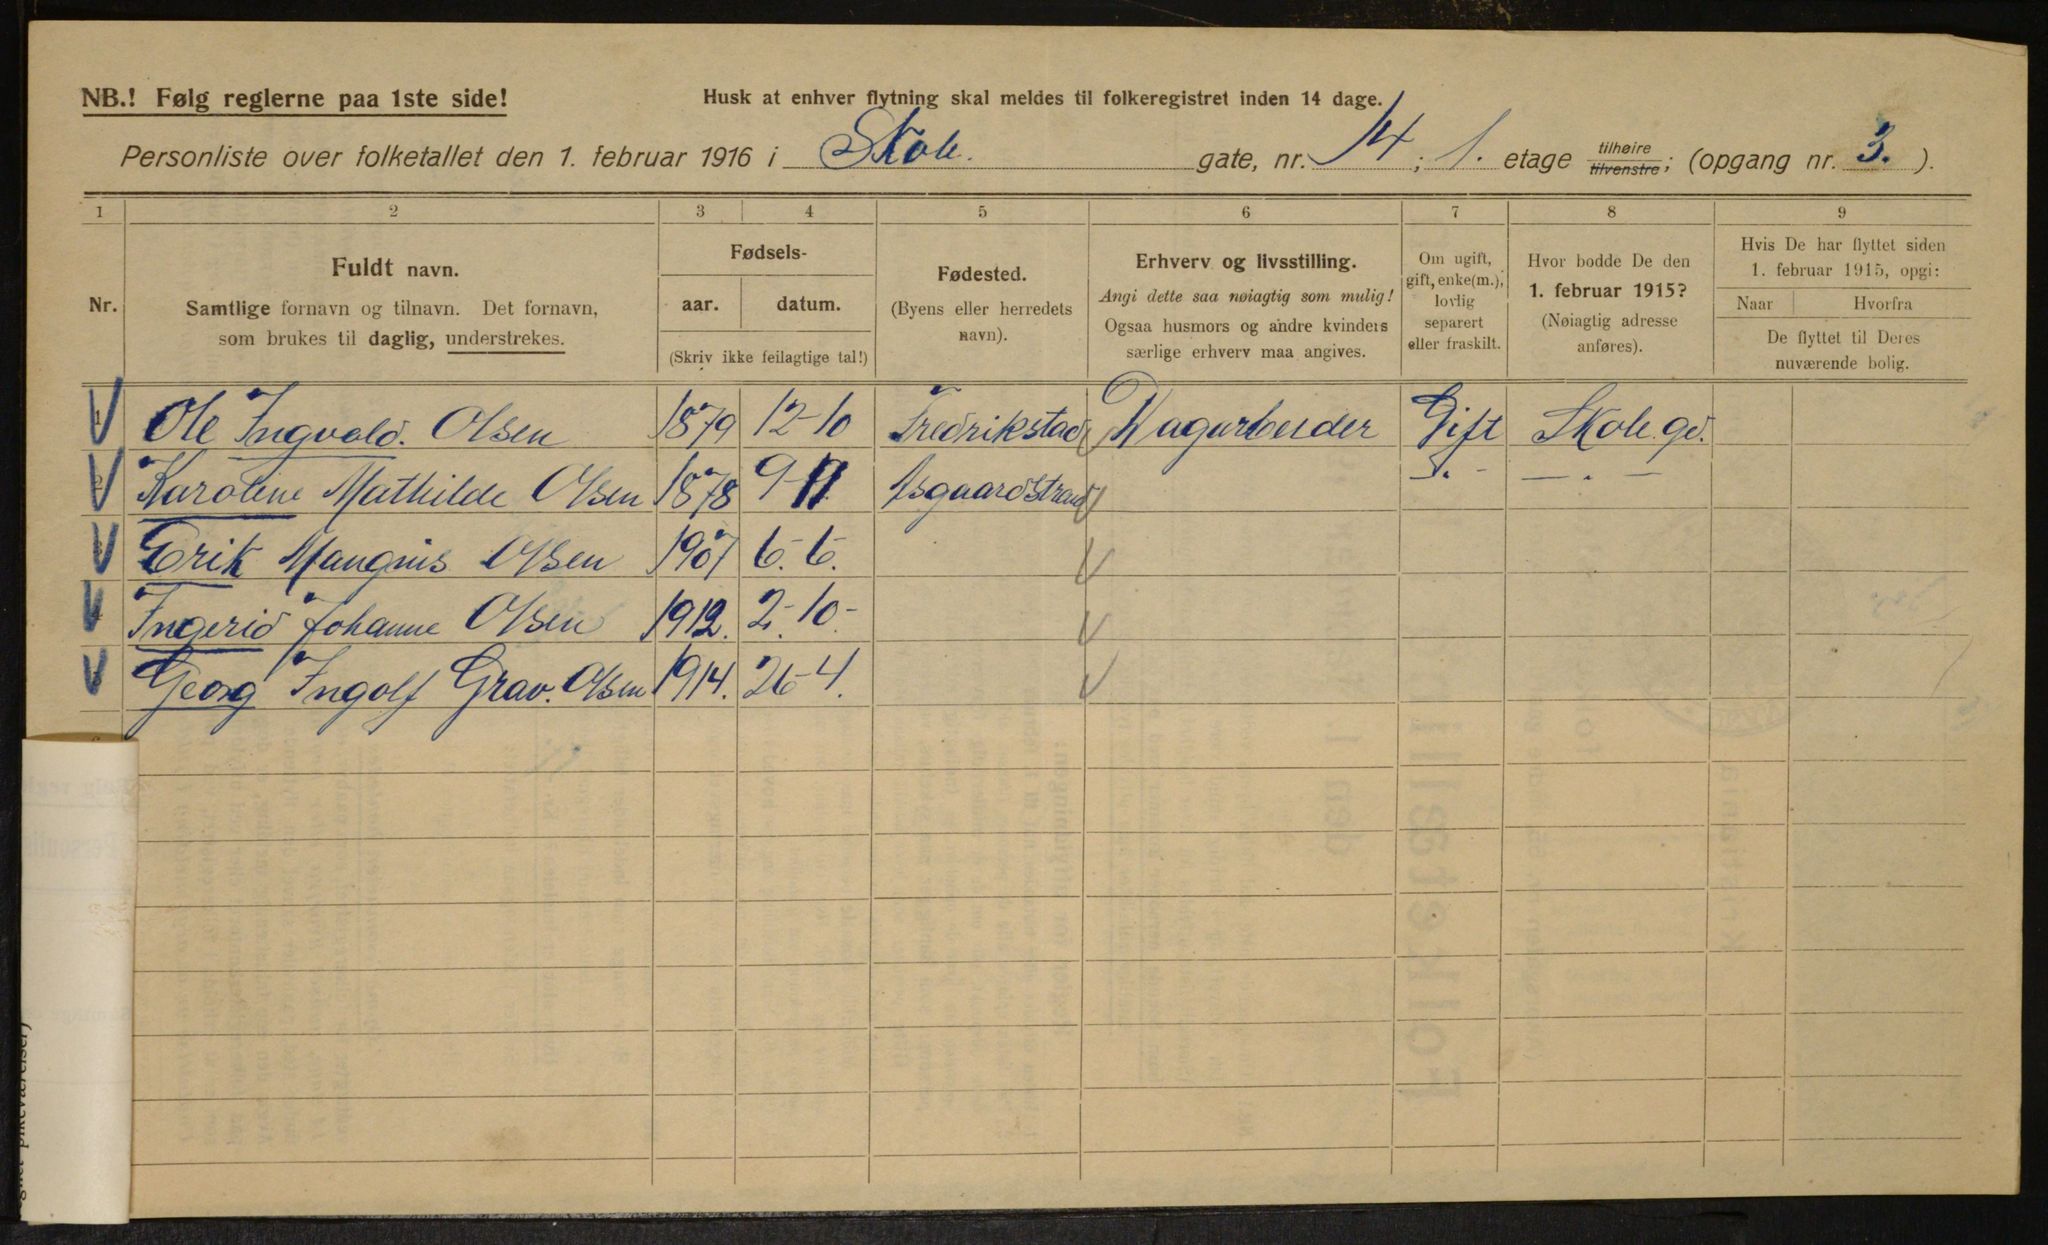 NB.! Følg reglerne paa 1ste side!
Husk at enhver flytning skal meldes til folkeregistret inden 14 dage.
Personliste over folketallet den 1. februar 1916 i Skole. gate, nr. 14; 1. etage tilhøire tilvenstre; (opgang nr. 3.).
1 2 3 4 5 6 7 8 9
Nr.
Fuldt navn.
Samtlige fornavn og tilnavn. Det fornavn,
som brukes til daglig, understrekes.
Fødsels-
aar. datum.
(Skriv ikke feilagtige tal!)
Fødested.
(Byens eller herredets
navn).
Erhverv og livsstilling.
Angi dette saa nøiagtig som mulig!
Ogsaa husmors og andre kvinders
særlige erhverv maa angives.
Om ugift,
gift, enke(m.),
lovlig
separert
eller fraskilt.
Hvor bodde De den
1. februar 1915?
(Nøiagtig adresse
anføres).
Hvis De har flyttet siden
1. februar 1915, opgi:
Naar Hvorfra
De flyttet til Deres
nuværende bolig.
1 Ole Ingvald. Olsen 1879 12-10 Fredrikstad Dagarbeider Gift Skole gd.
2 Karoline Mathilde Olsen 1878 9-11 Asgaardstrand -"- -"-
3 Erik Mangnus Olsen 1907 6.-6.
4 Ingerid Johanne Olsen 1912. 2.-10-
Georg Ingolf Grav. Olsen 1914. 26-4.